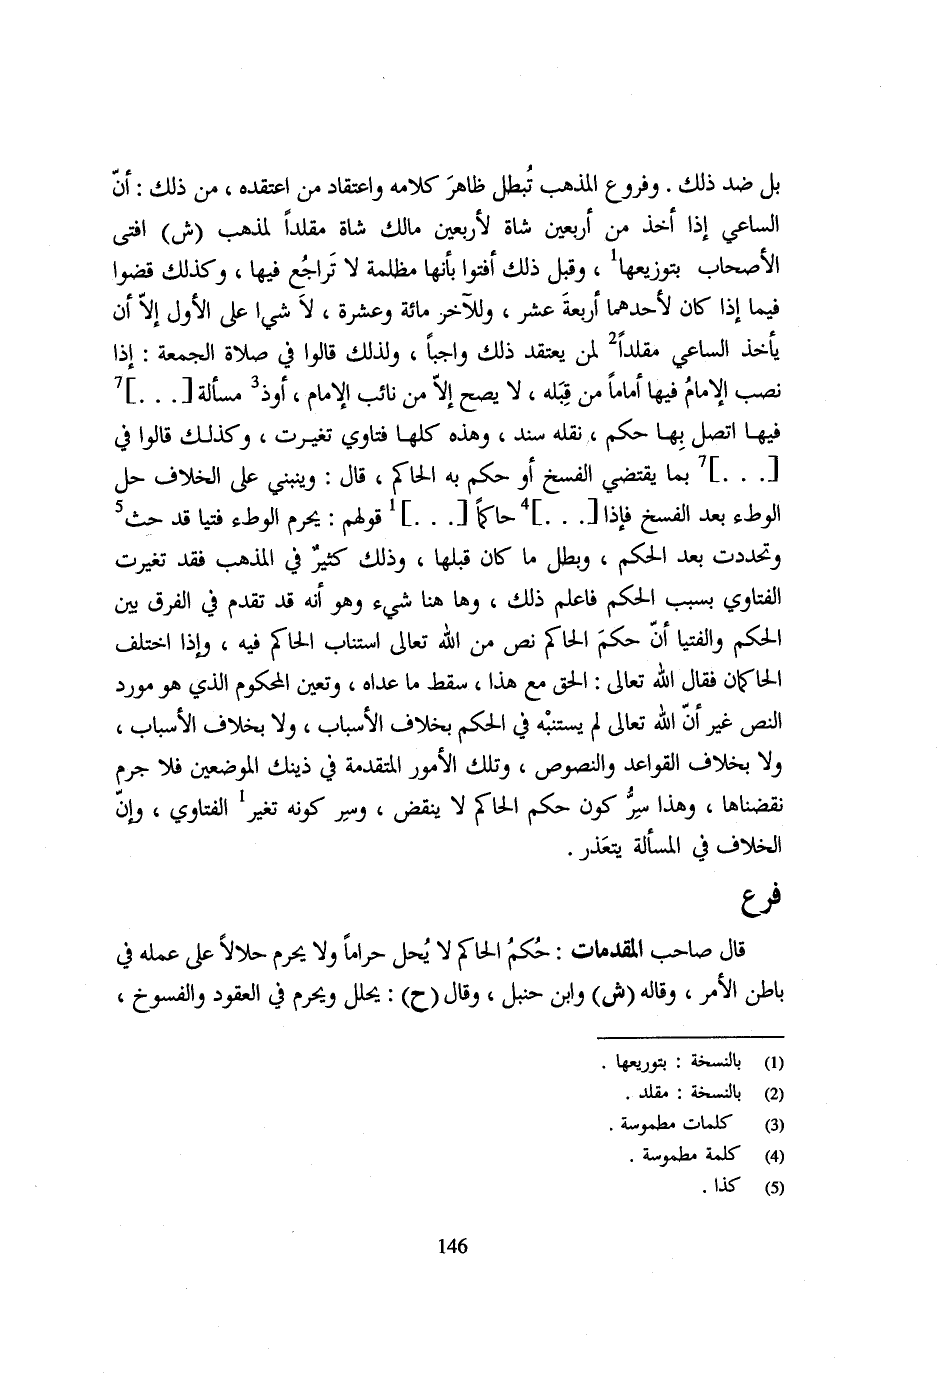 بل ضد ذلك . وفروع المذهب تُبطل ظاهرَ كلامه واعتقاد من اعتقده ، من ذلك : أنّ
الساعي إذا أخذ من أربعين شاة لأربعين مالك شاة مقلداً لمذهب (ش) افتى
الأصحاب بتوزيعها1 ، وقبل ذلك أفتوا بأنها مظلمة لا تَراجُع فيها ، وكذلك قضوا
فيما إذا كان لأحدهما أربعةَ عشر ، وللآخر مائة وعشرة ، لاَ شيا على الأول إلاّ أن
يأخذ الساعي مقلداً2 لمن يعتقد ذلك واجباً ، ولذلك قالوا في صلاة الجمعة : إذا
نصب الإمامُ فيها أماماً من قِبَله ، لا يصح إلاّ من نائب الإمام ، أوذ3 مسألة [. . .]7
فيها اتصل بِها حكم ، نقله سند ، وهذه كلها فتاوي تغيرت ، وكذلك قالوا في
[. . .]7 بما يقتضي الفسخ أو حكم به الحاكم ، قال : وينبني على الخلاف حل
الوطء بعد الفسخ فإذا [. . .]4 حاكماً [. . .]1 قولهم : يحرم الوطء فتيا قد حث5
وتحددت بعد الحكم ، وبطل ما كان قبلها ، وذلك كثيرٌ في المذهب فقد تغيرت
الفتاوي بسبب الحكم فاعلم ذلك ، وها هنا شيء وهو أنه قد تقدم في الفرق بين
الحكم والفتيا أنّ حكمَ الحاكم نص من الله تعالى استناب الحاكم فيه ، وإذا اختلف
الحاكمان فقال الله تعالى : الحق مع هذا ، سقط ما عداه ، وتعين المحكوم الذي هو مورد
النص غير أنّ الله تعالى لم يستنبْه في الحكم بخلاف الأسباب ، ولا بخلاف الأسباب ،
ولا بخلاف القواعد والنصوص ، وتلك الأمور المتقدمة في ذينك الموضعين فلا جرم
نقضناها ، وهذا سِرُّ كون حكم الحاكم لا ينقض ، وسر كونه تغير1 الفتاوي ، وإنّ
الخلاف في المسألة يتعَذر .
فرع
قال صاحب المقدمات : حُكمُ الحاكم لا يُحل حراماً ولا يحرم حلالاً على عمله في
باطن الأمر ، وقاله (ش) وابن حنبل ، وقال (ح) : يحلل ويحرم في العقود والفسوخ ،
(1) بالنسخة : بتوريعها .
(2) بالنسخة : مقلد .
(3) كلمات مطموسة .
(4) كلمة مطموسة .
(5) كذا .
146